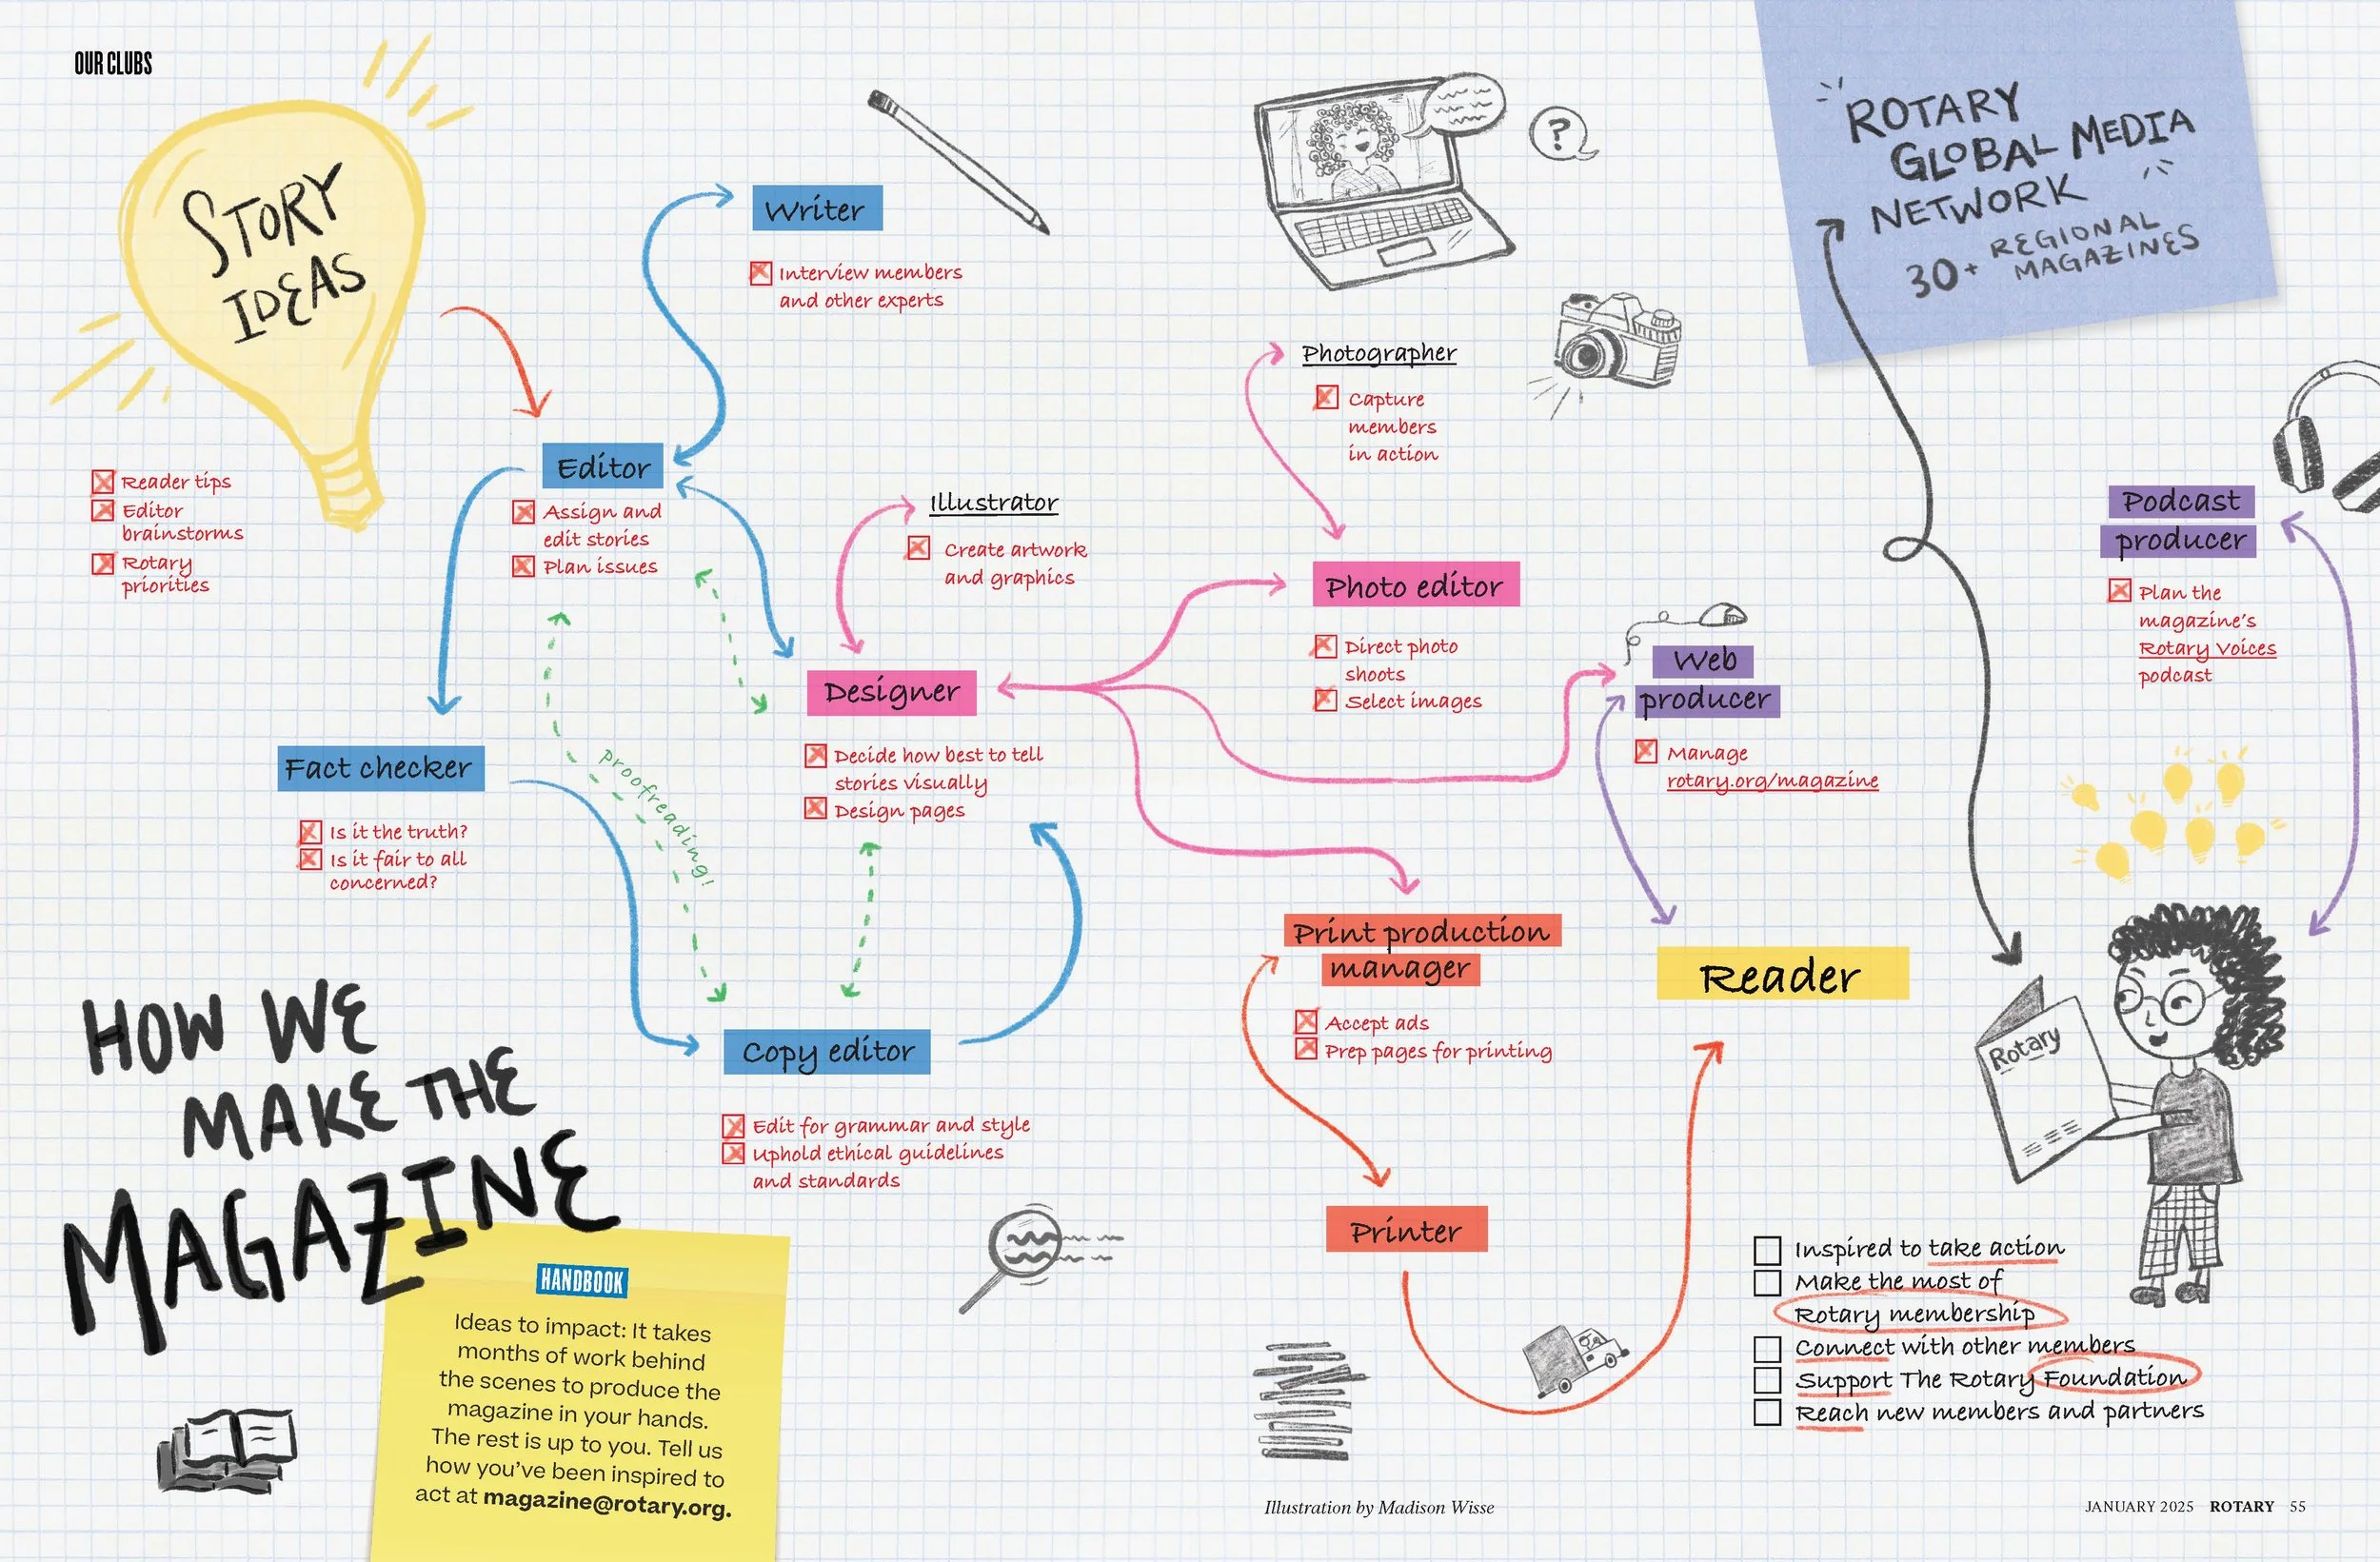 OUR CLUBS
STORY
IDEAS
Reader tips
Editor
brainstorms
Rotary
priorities
Writer
Interview members
and other experts
Editor
Assign and
edit stories
Plan issues
Illustrator
Create artwork
and graphics
Designer
Decide how best to tell
stories visually
Design pages
Fact checker
Is it the truth?
Is it fair to all
concerned?
proofreading!
Copy editor
Edit for grammar and style
Uphold ethical guidelines
and standards
HOW WE
MAKE THE
MAGAZINE
HANDBOOK
Ideas to impact: It takes
months of work behind
the scenes to produce the
magazine in your hands.
The rest is up to you. Tell us
how you've been inspired to
act at magazine@rotary.org.
?
Photographer
Capture
members
in action
Photo editor
Direct photo
shoots
Select images
Web
producer
Manage
rotary.org/magazine
Print production
manager
Accept ads
Prep pages for printing
Printer
ROTARY
GLOBAL MEDIA
NETWORK
30+ REGIONAL
MAGAZINES
Podcast
producer
Plan the
magazine's
Rotary Voices
podcast
Reader
Rotary
Inspired to take action
Make the most of
Rotary membership
Connect with other members
Support The Rotary Foundation
Reach new members and partners
Illustration by Madison Wisse
JANUARY 2025 ROTARY 55